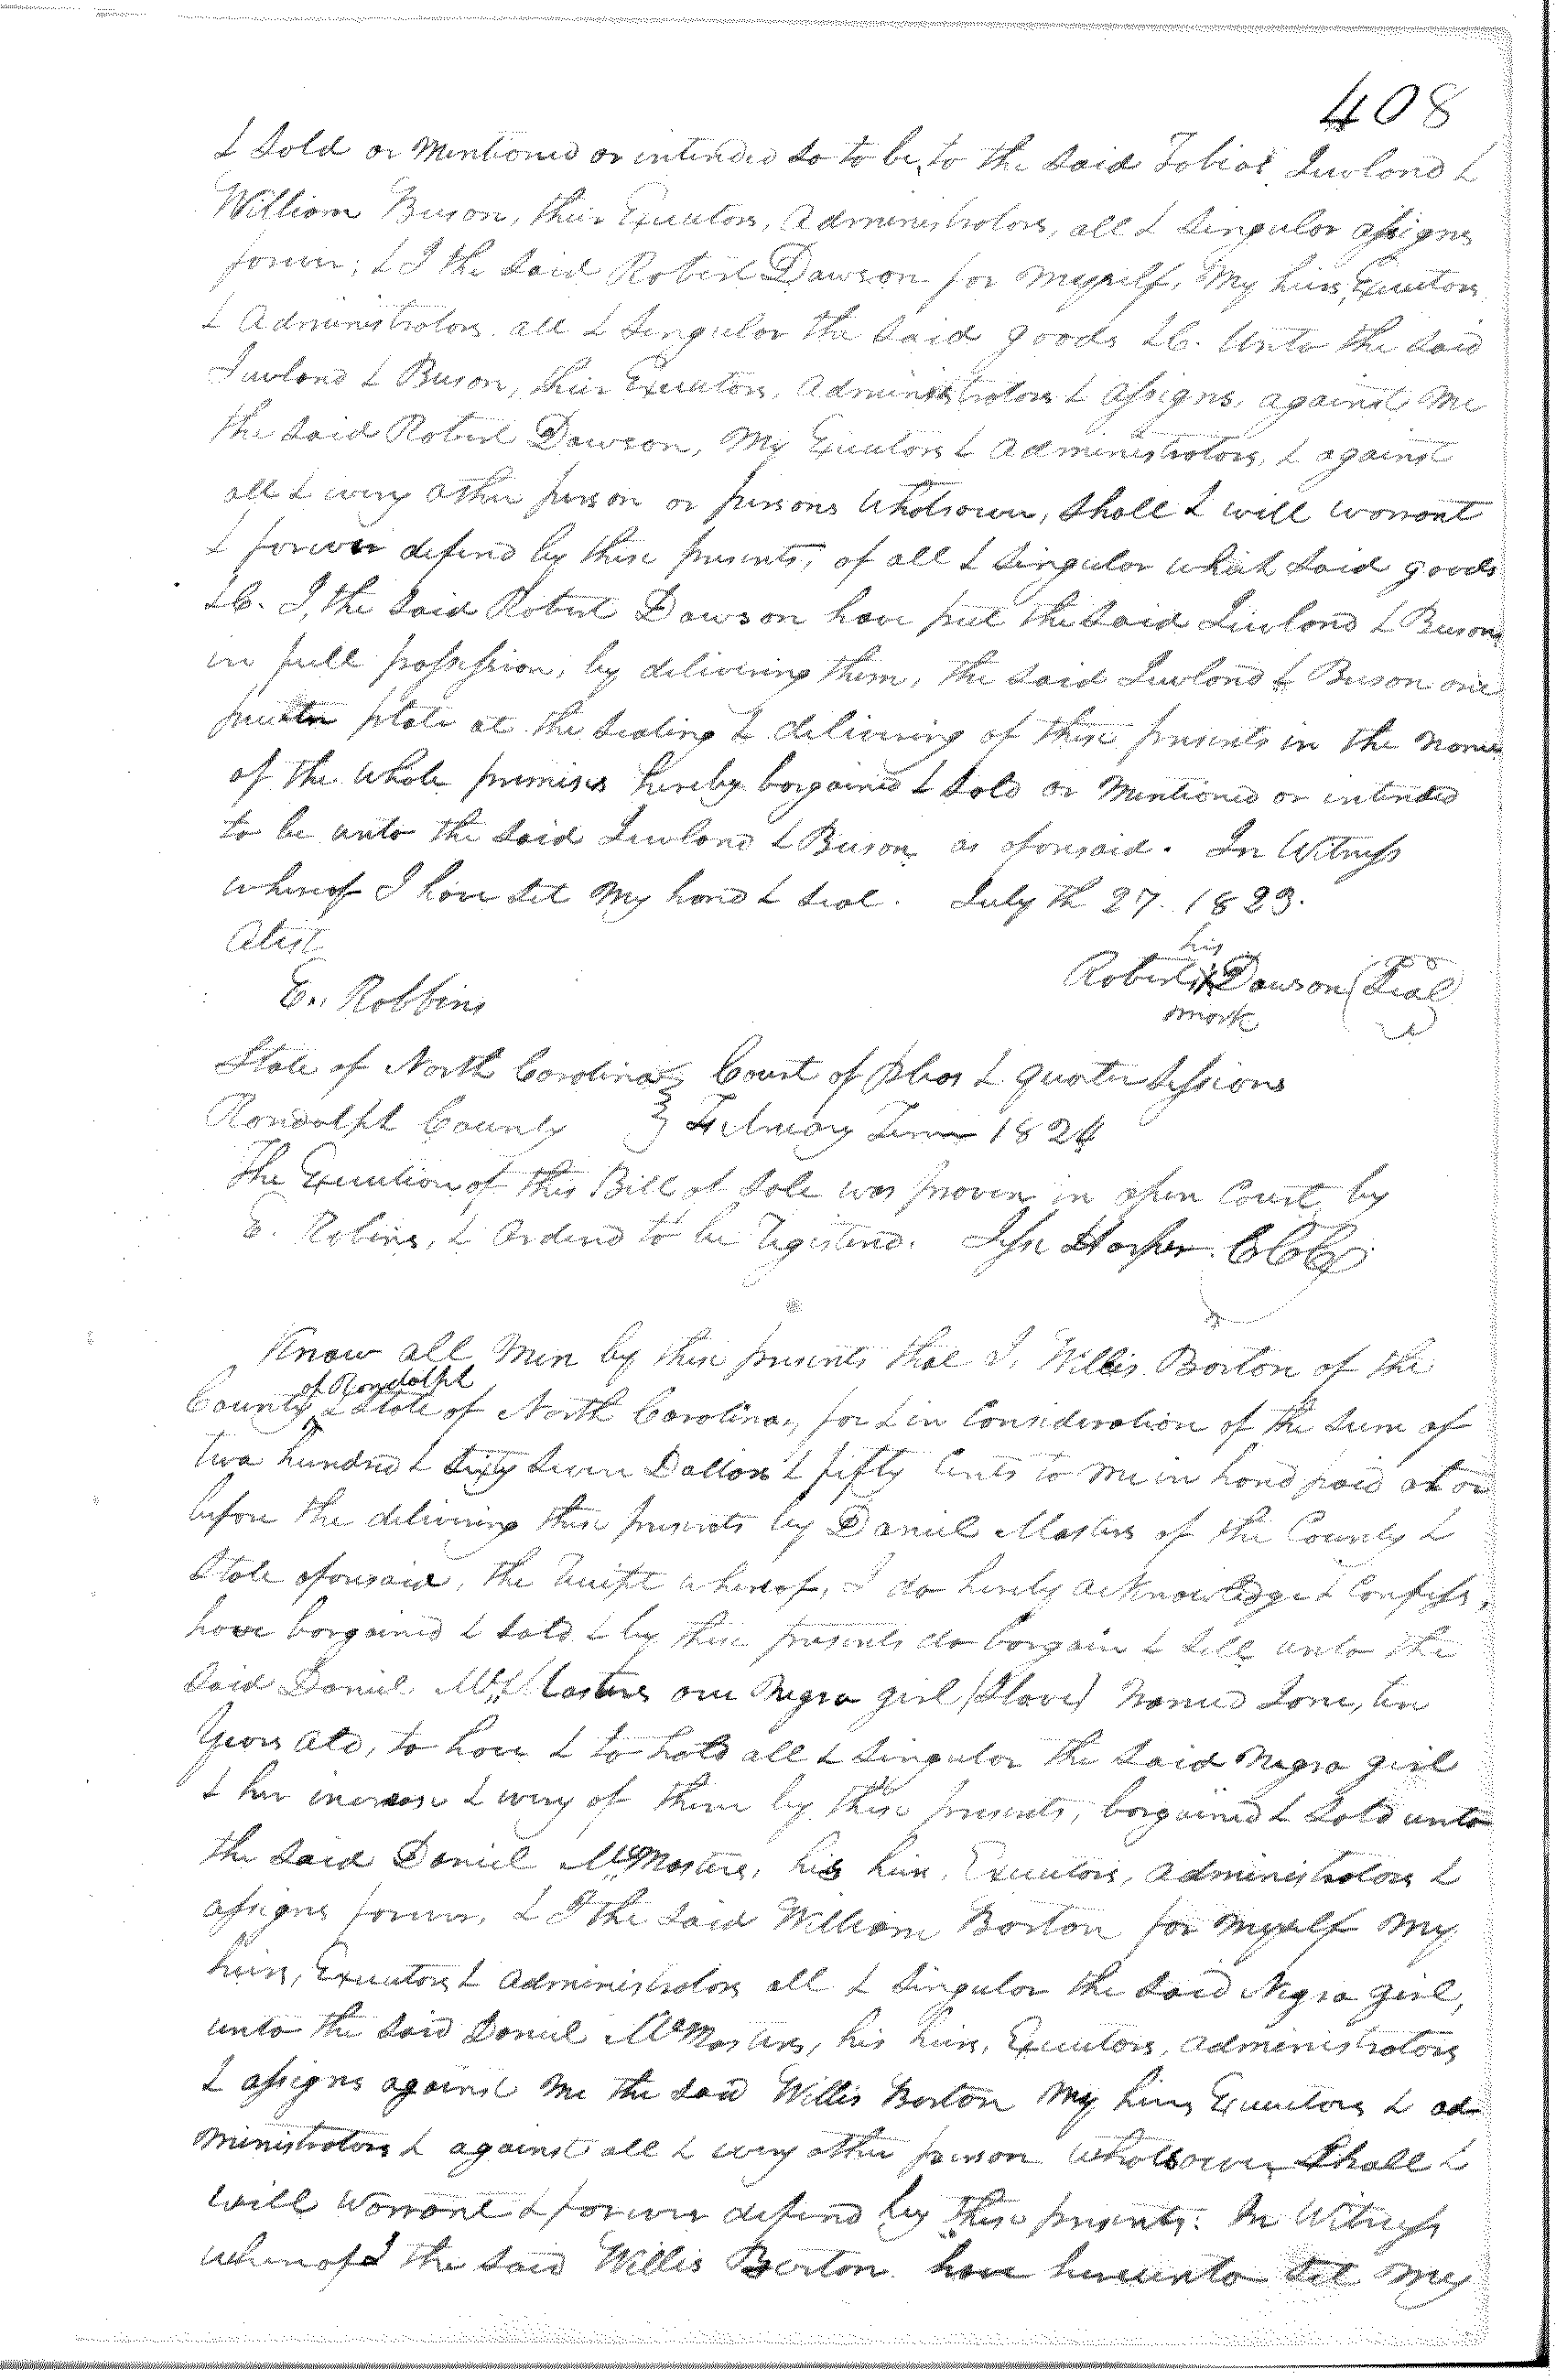 408
& Sold or Mentioned or intended so to be, to the said Tobias Luvlond &
William Buson, their Executors, Administrators, all & Singular assigns
forever; & I the said Robert Dawson for Myself, My heirs, Executors,
& Administrators all & Singular the said goods &c. Unto the said
Luvlond & Buson, their Executors, Administrators & Assigns, against Me
the said Robert Dawson, My Executors & Administrators, & against
all & every other person or persons Whotsoever, Shall & will warrant
& forever defend by these presents; of all & Singular which said goods
&c. I, the said Robert Dawson have put the said Luvlond & Buson
in full possession, by delivering them, the said Luvlond & Buson one
pewter plate at the sealing & delivering of these presents in the name
of the whole premises hereby bargained & Sold or Mentioned or intended
to be unto the said Luvlond & Buson, as aforesaid. In Witness
whereof I have set My hand & seal. July th 27. 1823.
Atest
E. Robbins
his
Robert X Dawson (Seal)
mark
State of North Carolina } Court of Pleas & quarter Sessions
Randolph County } February Term 1824
The Execution of this Bill of Sale was proven in open Court by
E. Robins, & Ordered to be Registered. Jesse Harper CCC
Know all Men by these presents that I, Willis Borton of the
of Randolph
County & State of North Carolina, for & in Consideration of the Sum of
two hundred & Sixty Seven Dollars & fifty Cents to Me in hand paid at or
before the delivering these presents by Daniel Masters of the County &
State aforesaid, the receipt whereof, I do hereby acknowledge & Confess,
have bargained & Sold & by these presents do bargain & Sell unto the
said Daniel McMasters one Negro girl (Slave) Named Jane, ten
Years Old, to have & to hold all & Singular the said Negro girl
& her increase & every of them by these presents, bargained & Sold unto
the said Daniel McMasters, his heirs, Executors, Administrators &
assigns forever, & I the said William Borton for Myself My
heirs, Executors & Administrators all & Singular the said Negro girl,
unto the said Daniel McMasters, his heirs, Executors, Administrators
& assigns against Me the said Willis Borton My heirs Executors & ad
ministrators & against all & every other person Whotsoever Shall &
will Warrant & forever defend by these presents. In Witness
whereof I the said Willis Borton have hereunto Set My